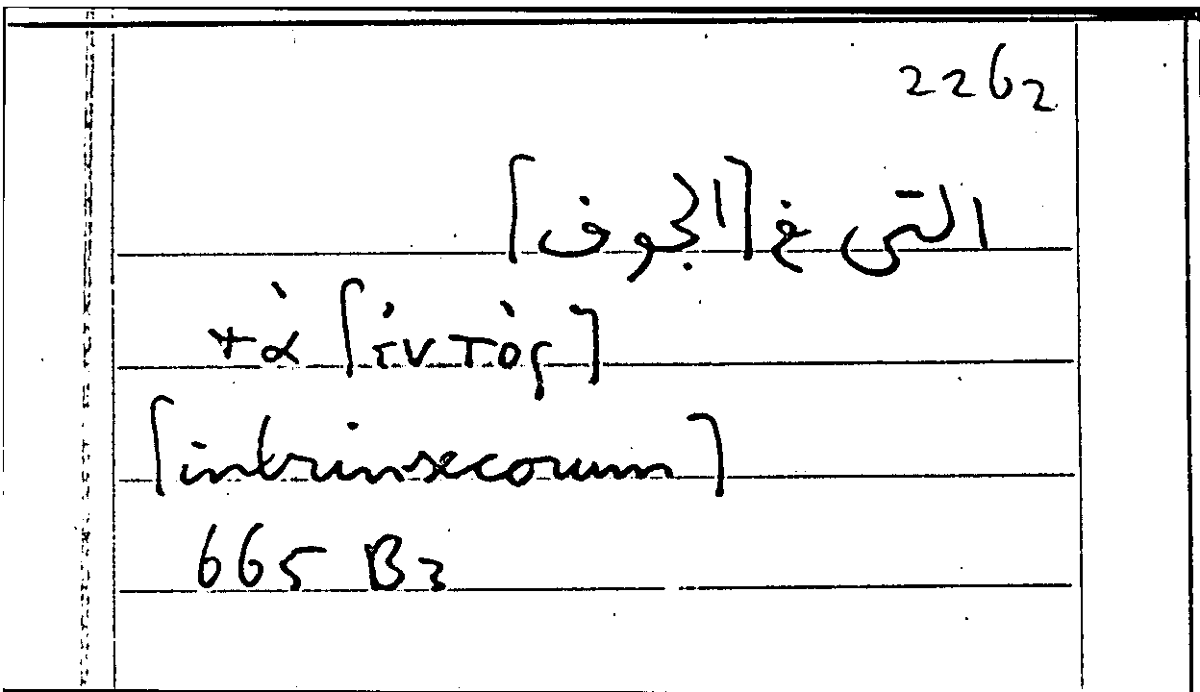 2262
التى فى [الجوف]
τὰ [ἐντὸς]
[intrinsecorum]
665 B3